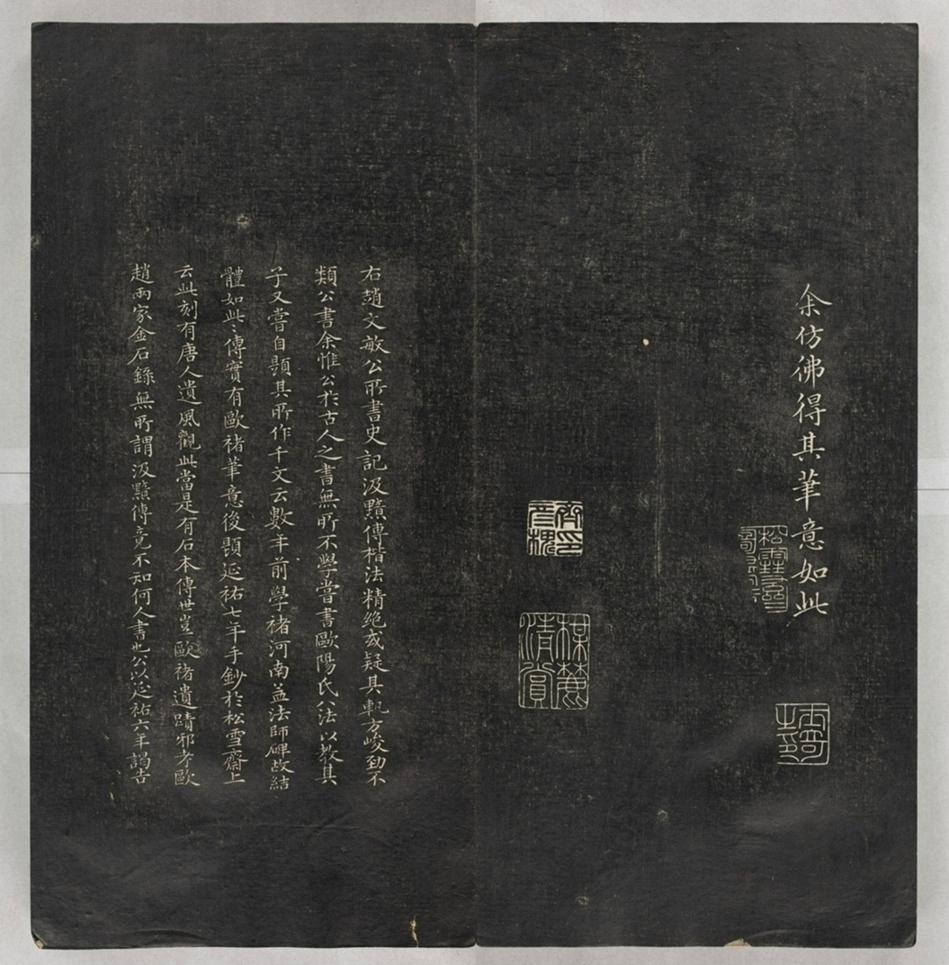 余仿佛得其筆意如此
右趙文敏公所書史記汲黯傳楷法精絶或疑其軌方峻勁不
類公書余惟公於古人之書無所不學嘗書歐陽氏八法以教其
子又嘗自題其所作千文云數年前學褚河南孟法師碑故結
體如此此傳實有歐褚筆意後題延祐七年手鈔於松雪齋上
云此刻有唐人遺風觀此當是有石本傳世豈歐褚遺蹟邪考歐
趙兩家金石錄無所謂汲黯傳竟不知何人書也公以延祐六年謁告